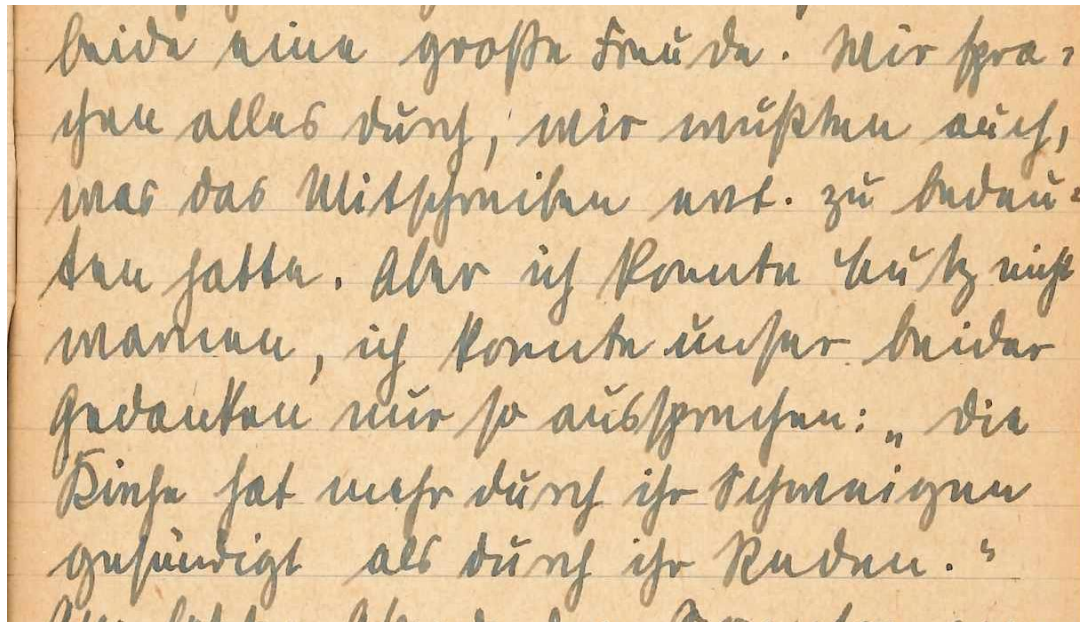 beide eine große Freude. Wir spra-
chen alles durch, wir wußten auch,
was das Mitschreiben evt. zu bedeu-
ten hatte. Aber ich konnte Butz nicht
warnen, ich konnte unser beider
Gedanken nur so aussprechen: „Die
Kirche hat mehr durch ihr Schweigen
gesündigt als durch ihr Reden."